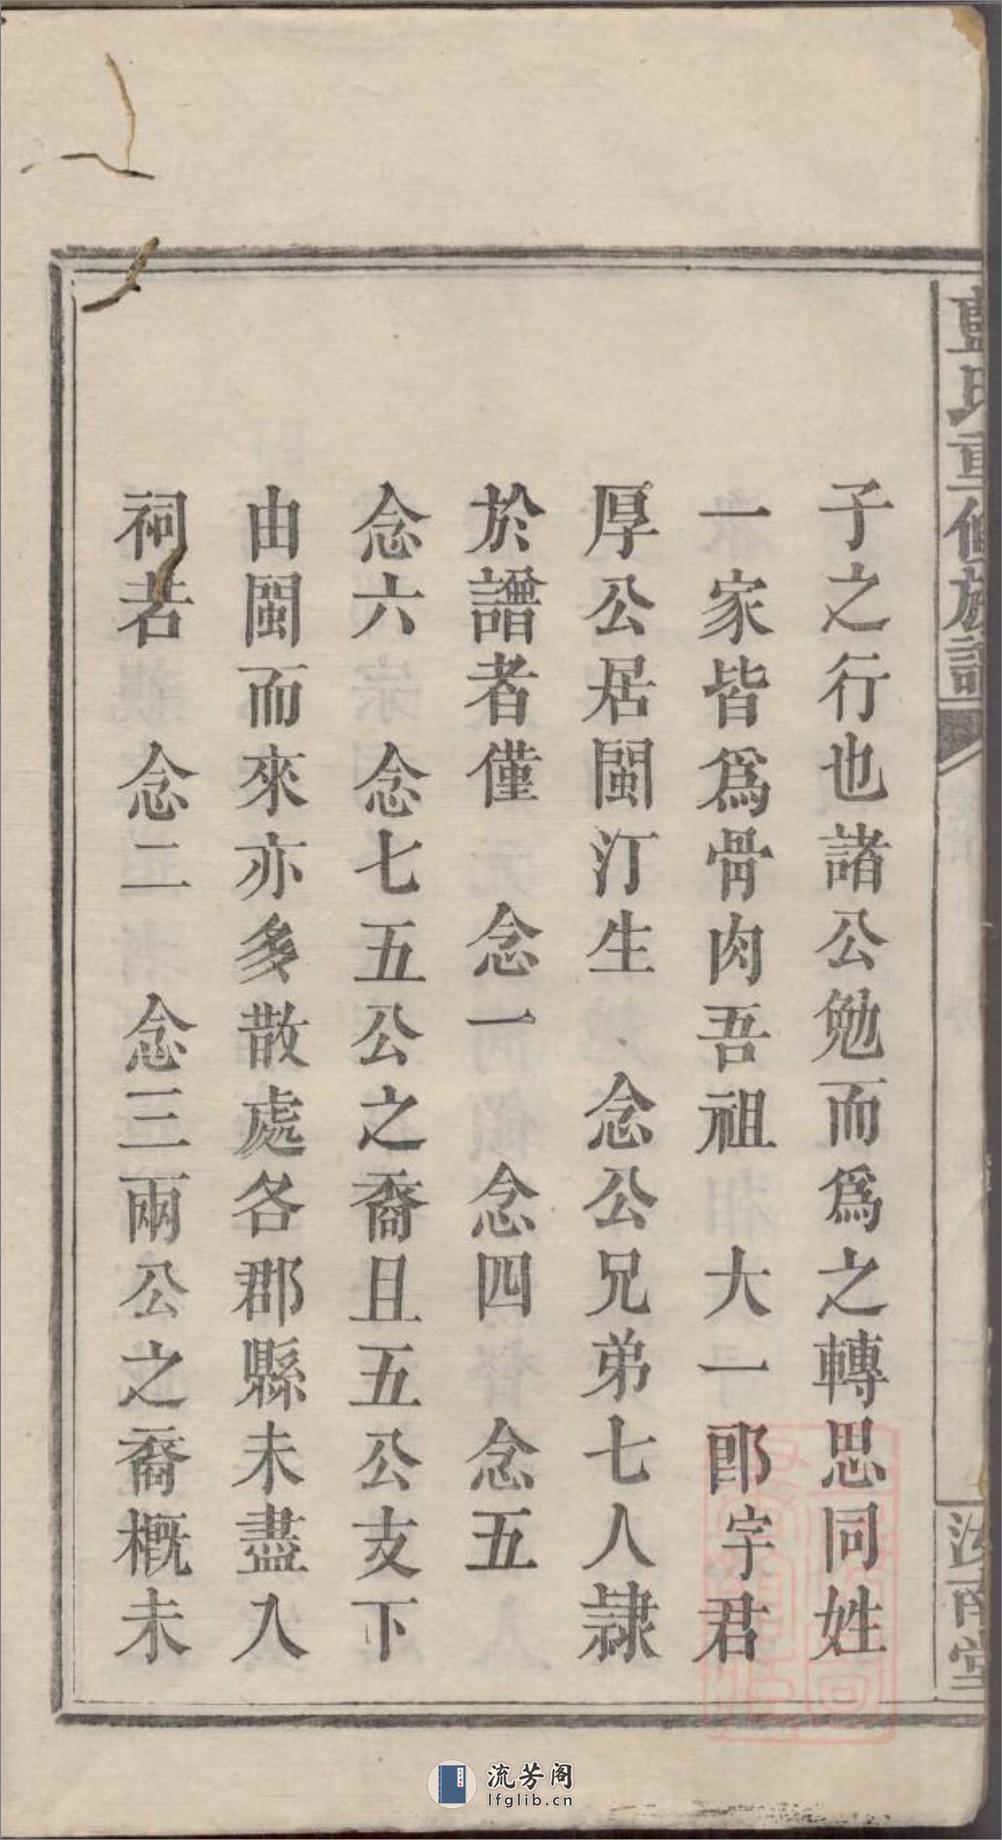 藍氏重修族譜
汝南堂
子之行也諸公勉而為之轉思同姓
一家皆為骨肉吾祖 大一郎宇君
厚公居閩汀生 念公兄弟七人隷
於譜者僅 念一 念四 念五
念六 念七五公之裔且五公支下
由閩而來亦多散處各郡縣未盡入
祠若 念二 念三兩公之裔概未
流芳阁
lfglib.cn